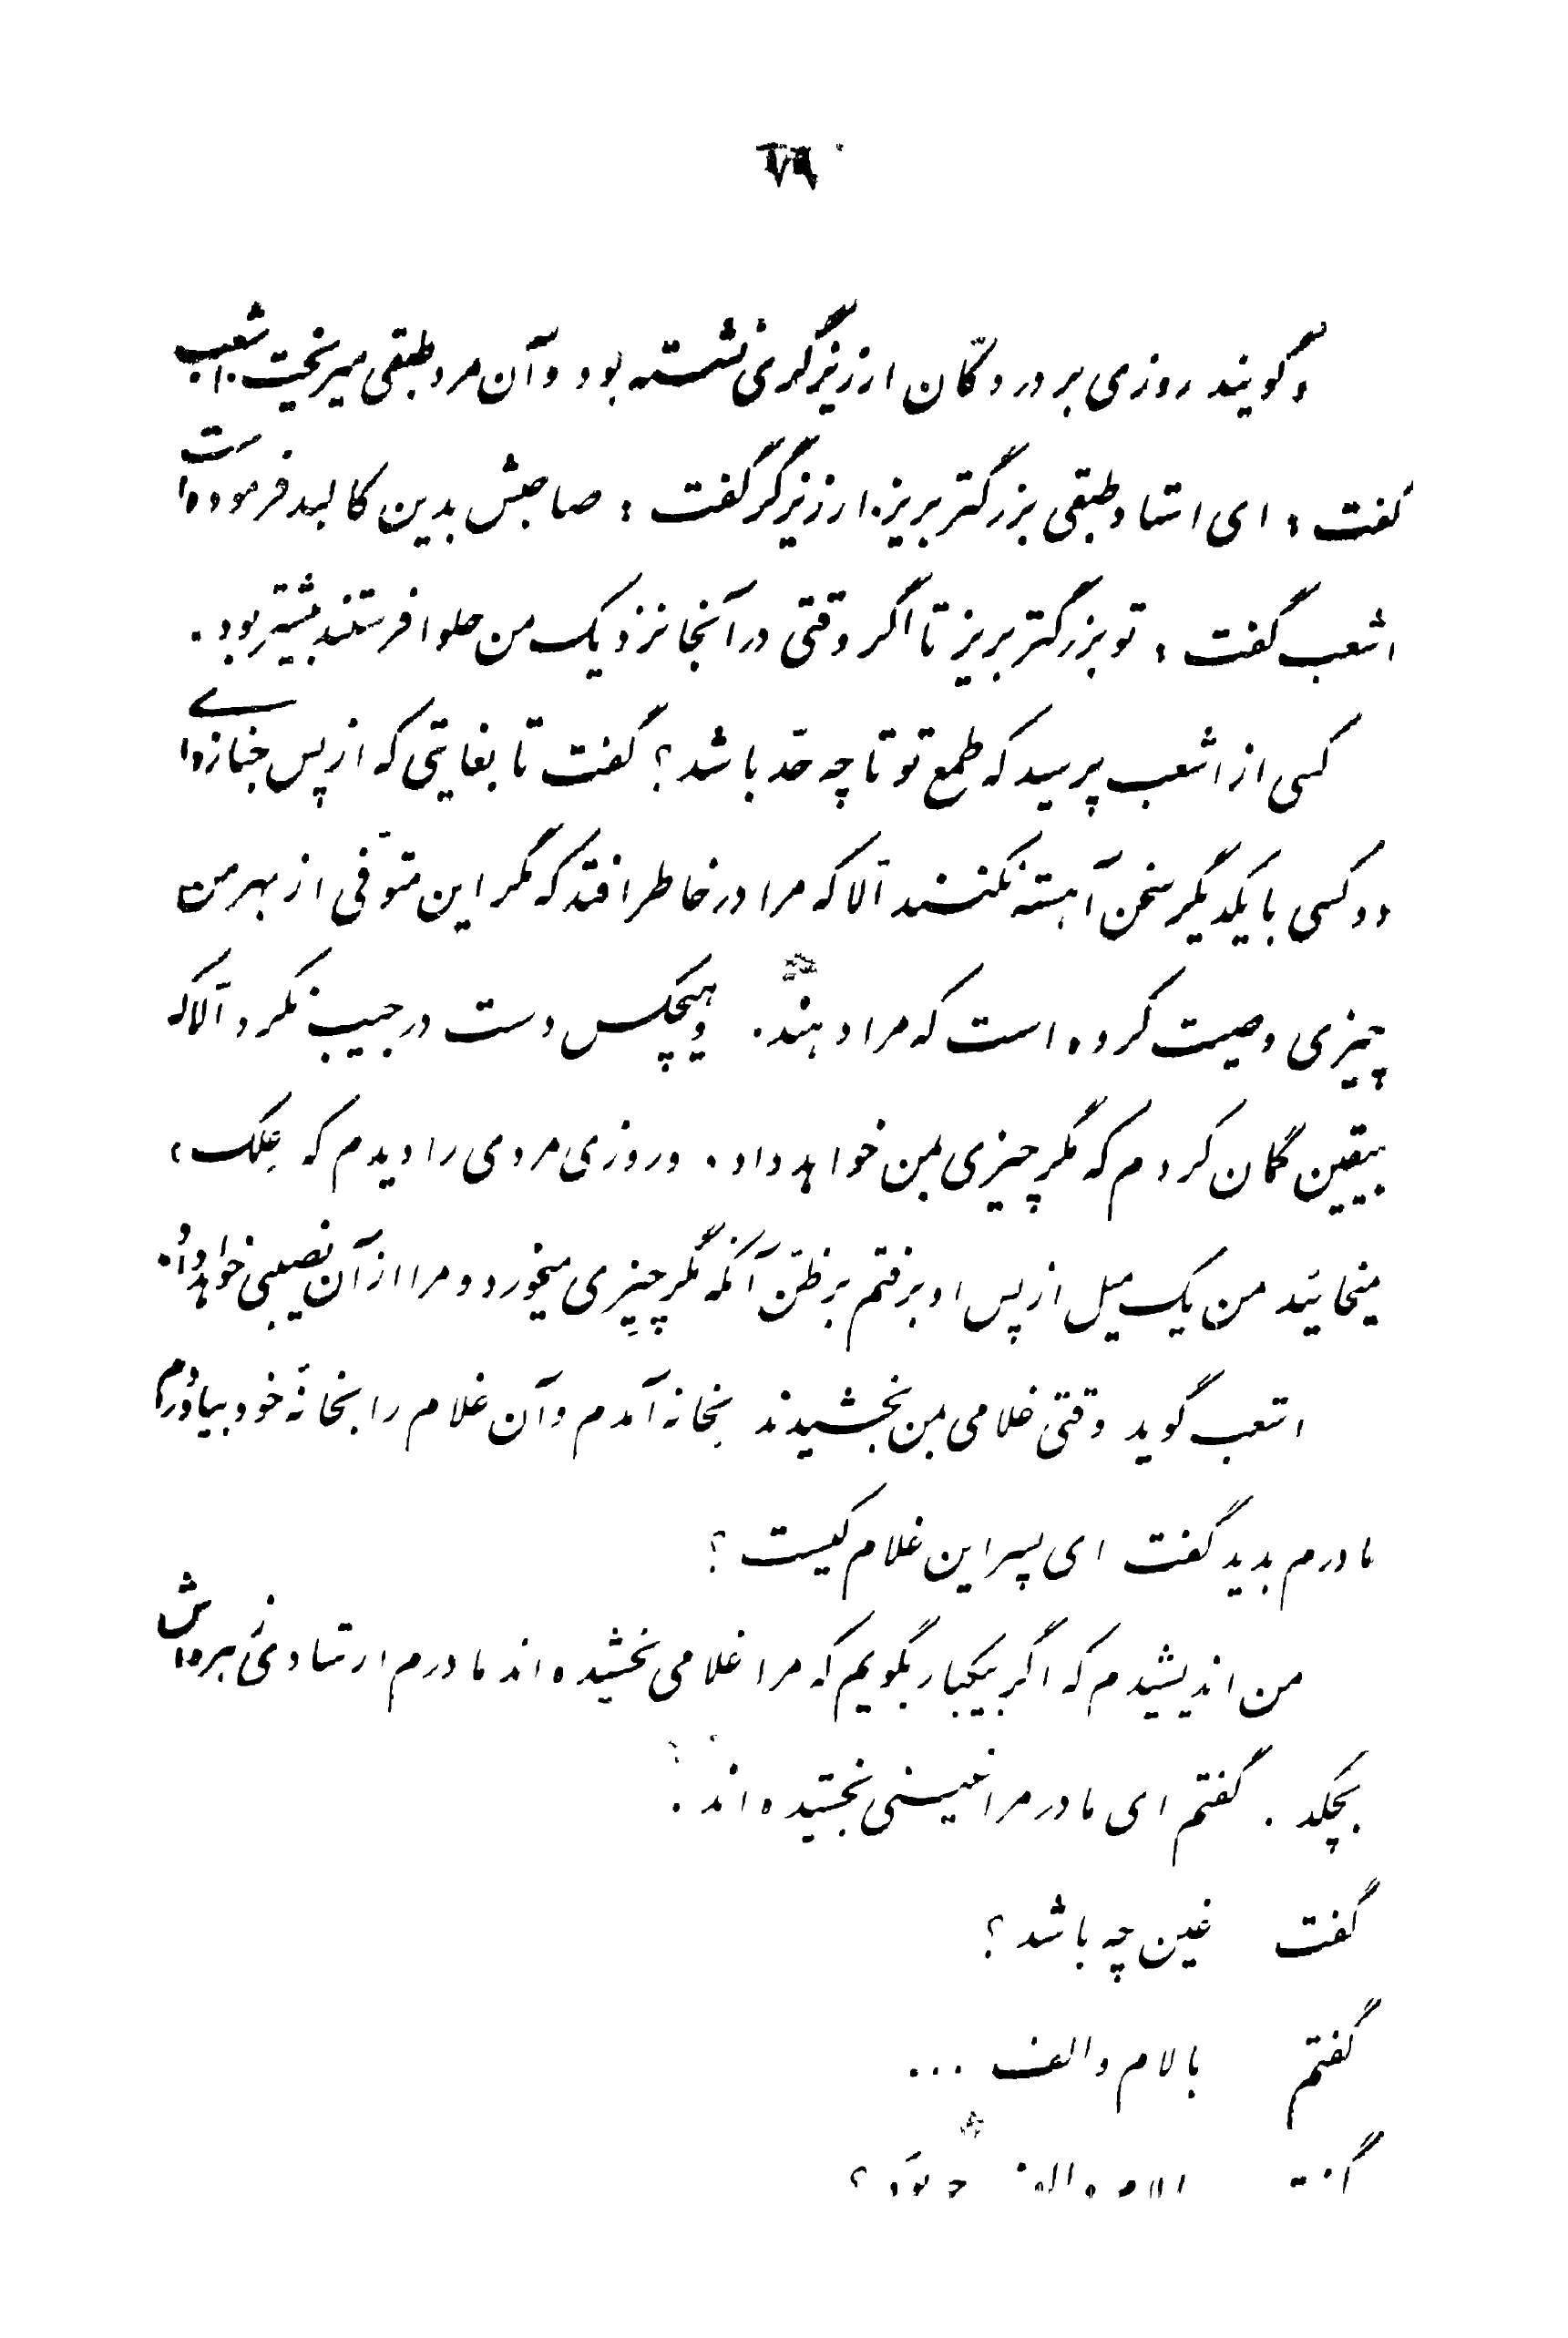 ۷۹
و گویند روزی بر در دکان ارزیزگری نشسته بود و آن مرد طبقی میریخت. اشعب
گفت: ای استاد طبقی بزرگتر بریز. ارزیزگر گفت: صاحبش بدین کالبد فرموده است
اشعب گفت: تو بزرگتر بریز تا اگر وقتی در آنجا نزدیک من حلوا فرستند بیشتر بود.
کسی از اشعب پرسید که طمع تو تا چه حدّ باشد؟ گفت تا بغایتی که از پس جنازه‌ای
دو کسی با یکدیگر سخن آهسته نکنند الّا که مرا در خاطر افتد که مگر این متوّفی از بهر من
چیزی وصیت کرده است که مرا دهند. و هیچکس دست در جیب نکرد الّا که
بیقین گمان کردم که مگر چیزی بمن خواهد داد. و روزی مردی را دیدم که عِلک
میخائید من یک میل از پس او برفتم بر ظنّ آنکه مگر چیزی میخورد و مرا از آن نصیبی خواهد داد.
اشعب گوید وقتی غلامی بمن بخشیدند بخانه آمدم و آن غلام را بخانهٔ خود بیاوردم
مادرم بدید گفت ای پسر این غلام کیست؟
من اندیشیدم که اگر بیکبار بگویم که مرا غلامی بخشیده‌اند مادرم از شادی زهره‌اش
بچکد. گفتم ای مادر مرا غینی بخشیده‌اند.
گفت غین چه باشد؟
گفتم با لام و الف ...
گفت لام و الف چه بود؟